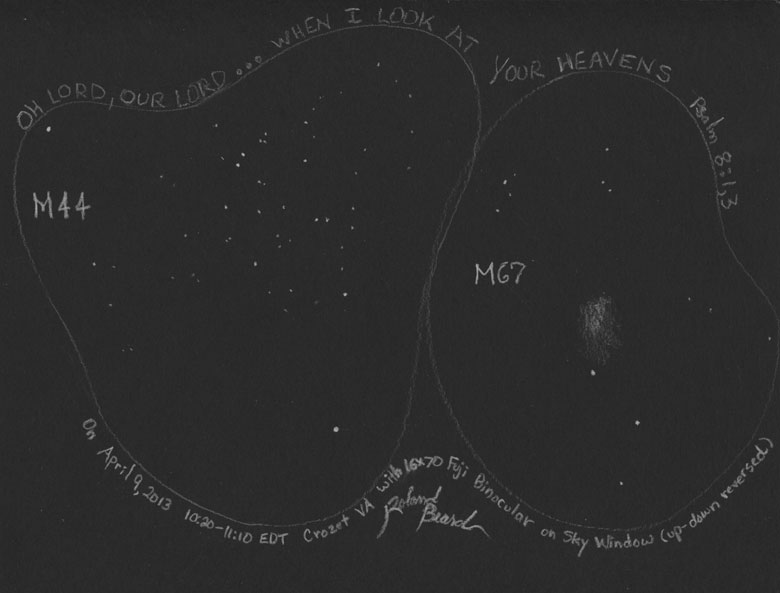 OH LORD, OUR LORD... WHEN I LOOK AT YOUR HEAVENS Psalm 8:1,3
M44
M67
On April 9, 2013 10:20-11:10 EDT Crozet VA with 16x70 Fuji Binocular on Sky Window (up-down reversed)
Roland Beard